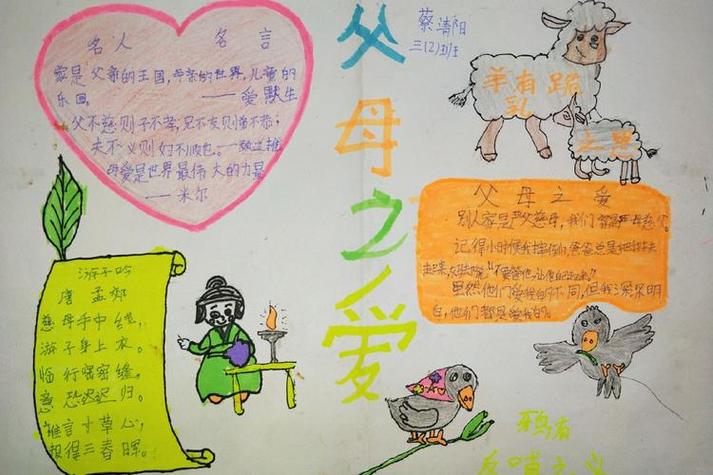 名人 名言
家是父亲的王国,母亲的世界,儿童的
乐园。 ——爱默生
父不慈则子不孝,兄不友则弟不恭,
夫不义则妇不顺也。——颜之推
母爱是世界最伟大的力量
——米尔
父母之爱
蔡清阳
三(2)班
羊有跪
乳
之恩
父母之爱
别人家是严父慈母,我们家是严母慈父。
记得小时候我摔倒,爸爸总是把我扶
起来,
虽然他们爱我的不同,但我深深明
白,他们都是爱我的。
游子吟
唐 孟郊
慈母手中线,
游子身上衣。
临行密密缝,
意恐迟迟归。
谁言寸草心,
报得三春晖。
鸦有
反哺之义